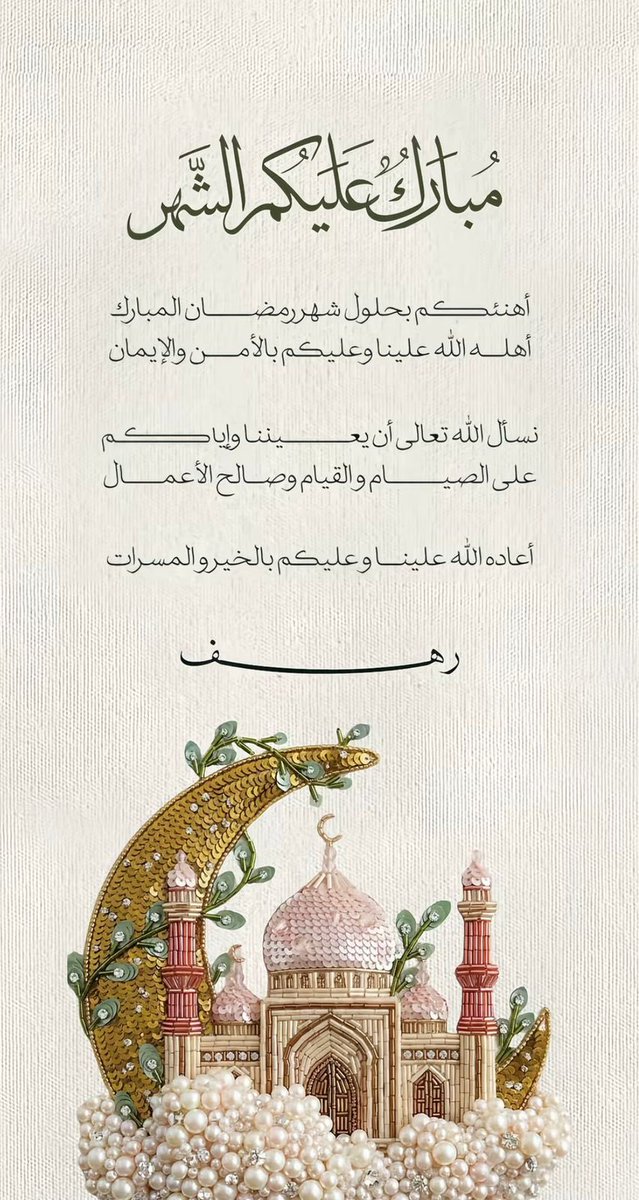 مُبارَكٌ عَلَيكُم الشَّهر
أهنئكم بحلول شهر رمضان المبارك
أهله الله علينا وعليكم بالأمن والإيمان
نسأل الله تعالى أن يعيننا وإياكم
على الصيام والقيام وصالح الأعمال
أعاده الله علينا وعليكم بالخير والمسرات
رهف